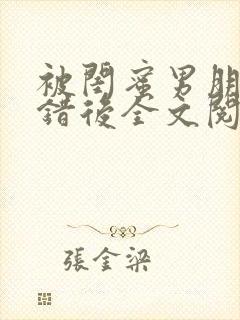 被閨蜜男朋
錯後全文閱
張金梁